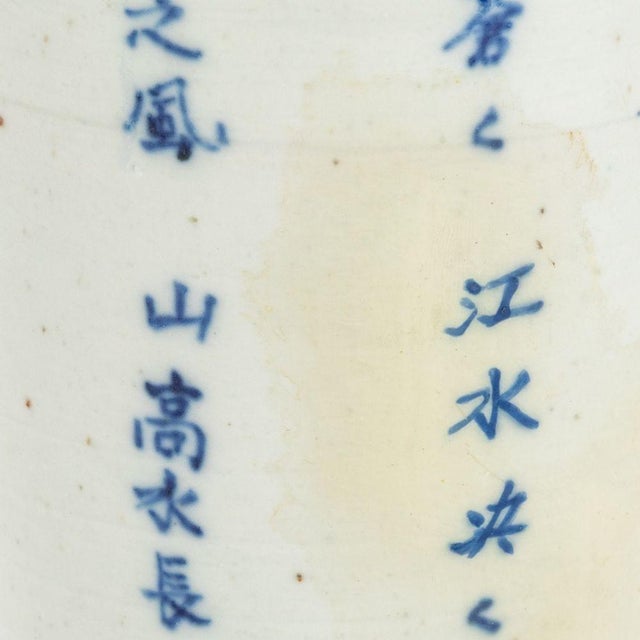 蒼〻江水泱〻
之風山高水長